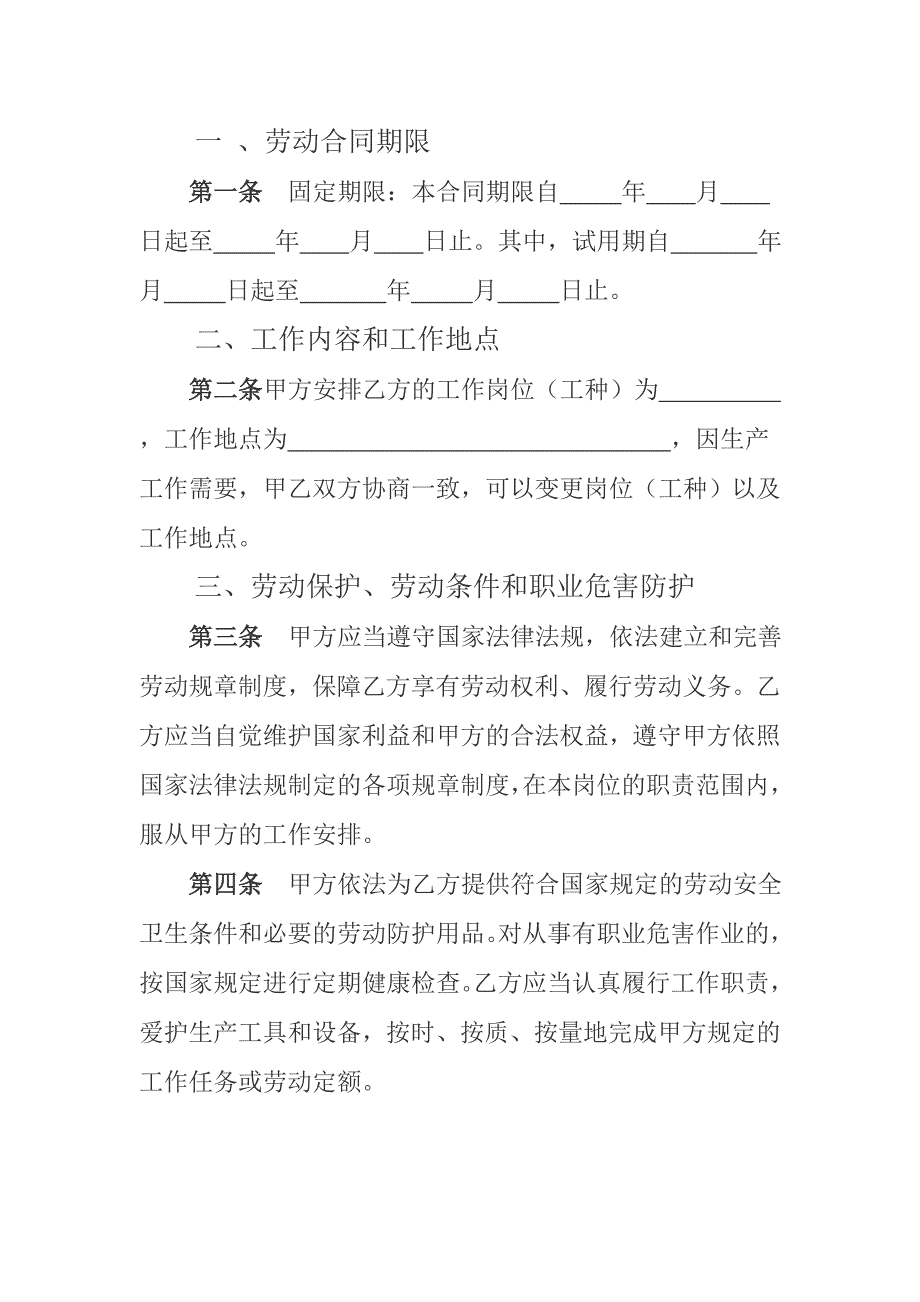 一 、劳动合同期限
第一条 固定期限：本合同期限自_____年____月____
日起至_____年____月____日止。其中，试用期自_______年
月_____日起至_______年_____月_____日止。
二、工作内容和工作地点
第二条甲方安排乙方的工作岗位（工种）为__________
，工作地点为_______________________________，因生产
工作需要，甲乙双方协商一致，可以变更岗位（工种）以及
工作地点。
三、劳动保护、劳动条件和职业危害防护
第三条 甲方应当遵守国家法律法规，依法建立和完善
劳动规章制度，保障乙方享有劳动权利、履行劳动义务。乙
方应当自觉维护国家利益和甲方的合法权益，遵守甲方依照
国家法律法规制定的各项规章制度，在本岗位的职责范围内，
服从甲方的工作安排。
第四条 甲方依法为乙方提供符合国家规定的劳动安全
卫生条件和必要的劳动防护用品。对从事有职业危害作业的，
按国家规定进行定期健康检查。乙方应当认真履行工作职责，
爱护生产工具和设备，按时、按质、按量地完成甲方规定的
工作任务或劳动定额。